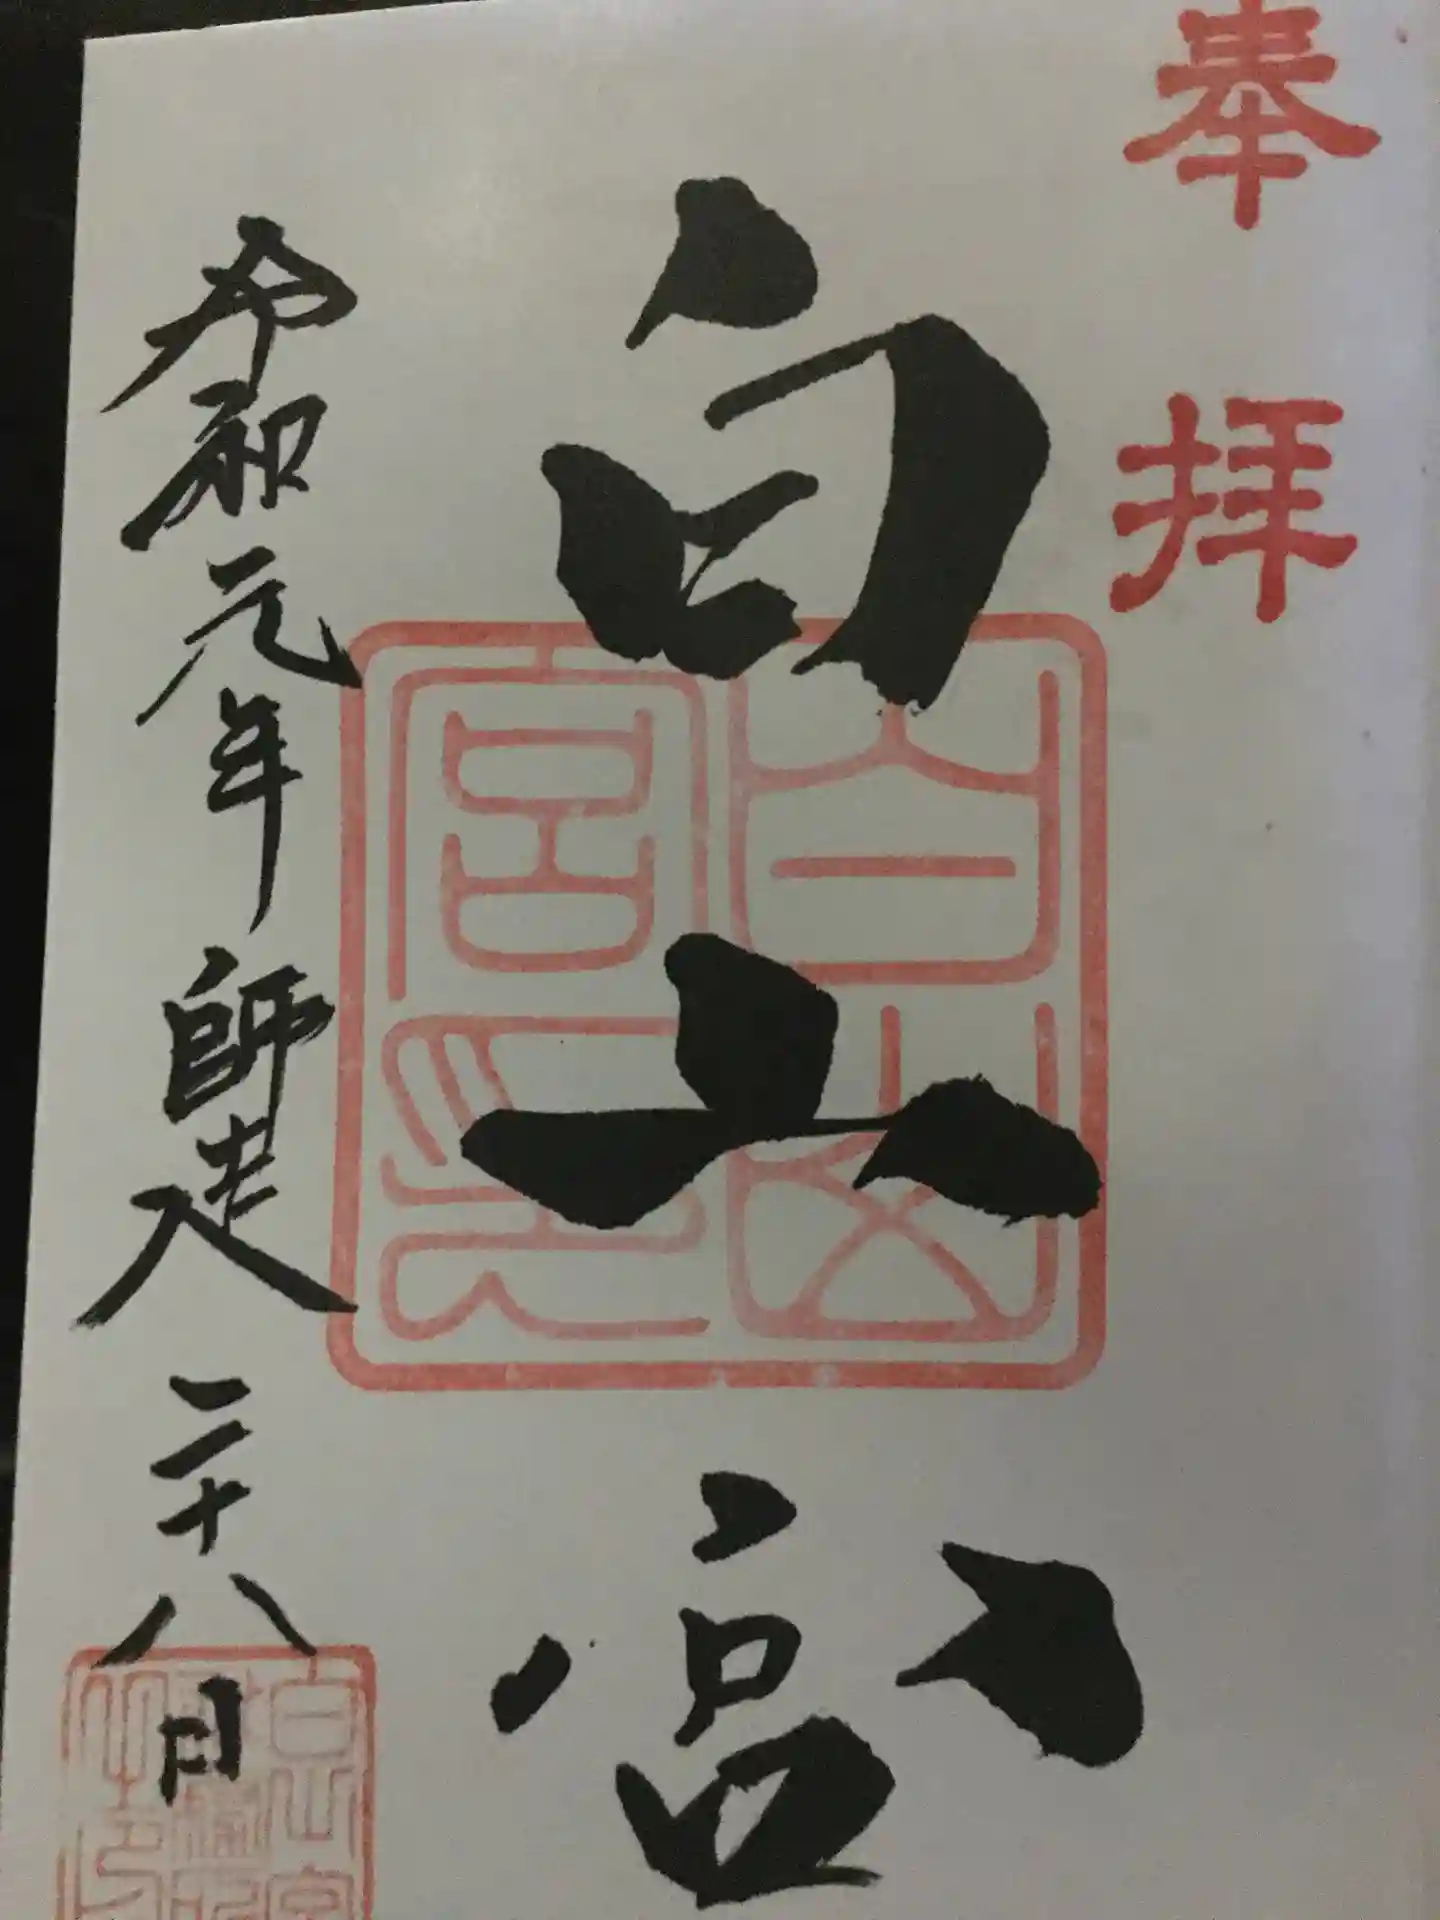 奉拝
白山宮
白山宮印
令和元年師走二十八日
白山宮